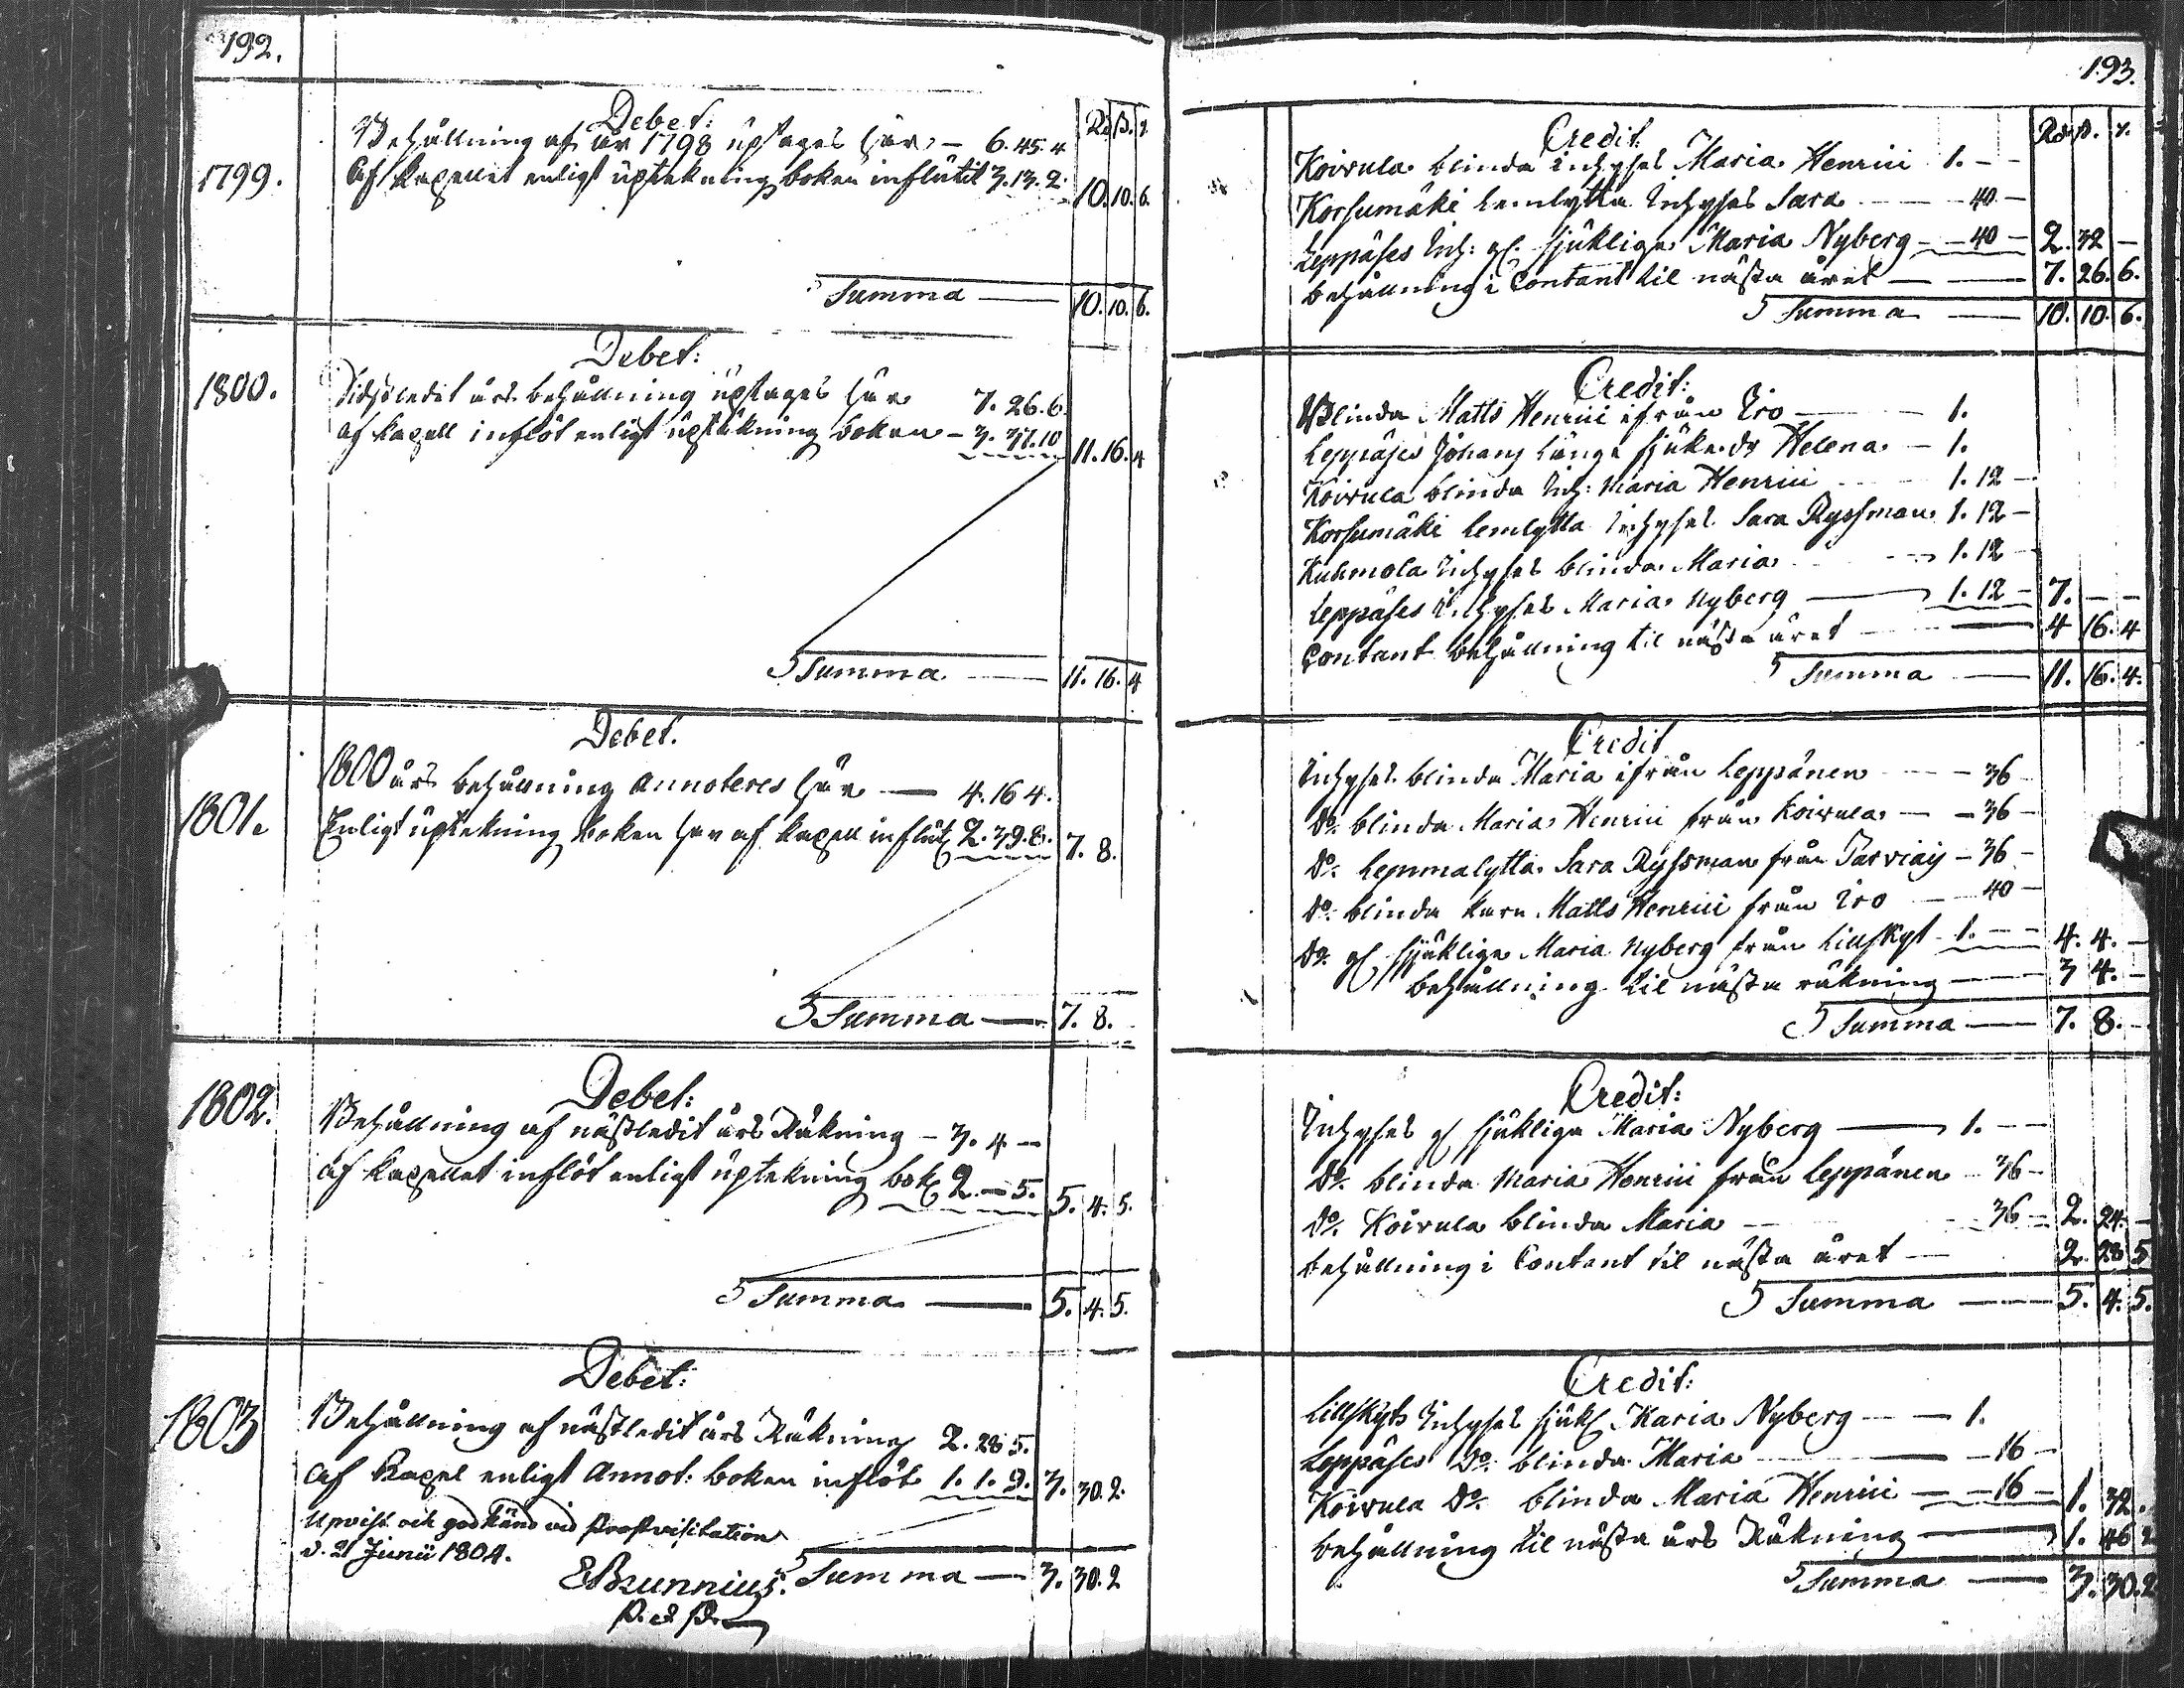 192.
Debet:
Rd ß. r.
1799.
Behållning af år 1798 uptages här — 6.45.4
Af Kapellet enligt uptekning boken influtit 3.13.2. 10.10.6.
Summa — 10.10.6.
Debet:
1800.
Sidstledit års behållning uptages här 7.26.6.
af Kapell inflöt enligt uptekning boken — 3.37.10 11.16.4
Summa — 11.16.4
Debet.
1801.
1800 års behållning annoteres här — 4.16 4.
Enligt uptekning boken har af Kapell influt 2.39.8. 7.8.
Summa — 7.8.
Debet:
1802.
Behållning af nästledit års Räkning — 3.4 —
af Kapellet inflöt enligt uptekning bok 2.—5. 5.4.5.
Summa — 5.4.5.
Debet:
1803
Behållning af nästledit års Räkning 2.28 5.
Af Kapel enligt Annot: boken inflöt 1.1.9. 3.30.2.
Upvist och godkänd vid Prostvisitation
d. 21 Junii 1804.
Summa — 3.30.2
EBrunnius.
P. et Pr.
193.
Credit:
Rdr ß. r.
Koivula blinda inhyses Maria Henrici 1. — —
Korsumäki Lemlytta Inhyses Sara — 40 —
Leppäses Inh: sjuklige Maria Nyberg — 40 — 2.32 —
behållning i Contant til nästa året — 7.26.6.
Summa — 10.10.6.
Credit:
Blinda Matts Henrici ifrån Iro — 1.
Leppäses Johans länge sjuka dr Helena — 1.
Koivula blinda Inh: Maria Henrici 1.12 —
Korsumäki Lemlytta Inhyses Sara Ryssman 1.12 —
Kuhmola Inhyses blinda Maria 1.12 —
Leppäses Inhyses Maria Nyberg — 1.12 — 7. — —
Contant behållning til nästa året — 4 16.4
Summa — 11.16.4.
Credit
Inhyses blinda Maria ifrån Leppänen — 36 —
Do. blinda Maria Henrici från Koivula — 36 —
Do. Lemmalytta Sara Ryssman från Parviais — 36 —
Do. blinda karn Matts Henrici från Iro — 40 —
Do. sjuklige Maria Nyberg från Lillskyt 1. — — 4.4. —
behållning til nästa räkning — 3 4. —
Summa — 7.8. —
Credit:
Inhyses sjuklige Maria Nyberg — 1. — —
Do. blinda Maria Henrici från Leppänen — 36 —
Do. Koivula blinda Maria — 36 — 2.24. —
behållning i Contant til nästa året — 2.28 5
Summa — 5.4.5.
Credit:
Lillskyts Inhyses sjukl Maria Nyberg — 1.
Leppäses Do. blinda Maria — 16 —
Koivula Do. blinda Maria Henrici — 16 — 1.32.
behållning til nästa års Räkning — 1.46 2
Summa — 3.30.2